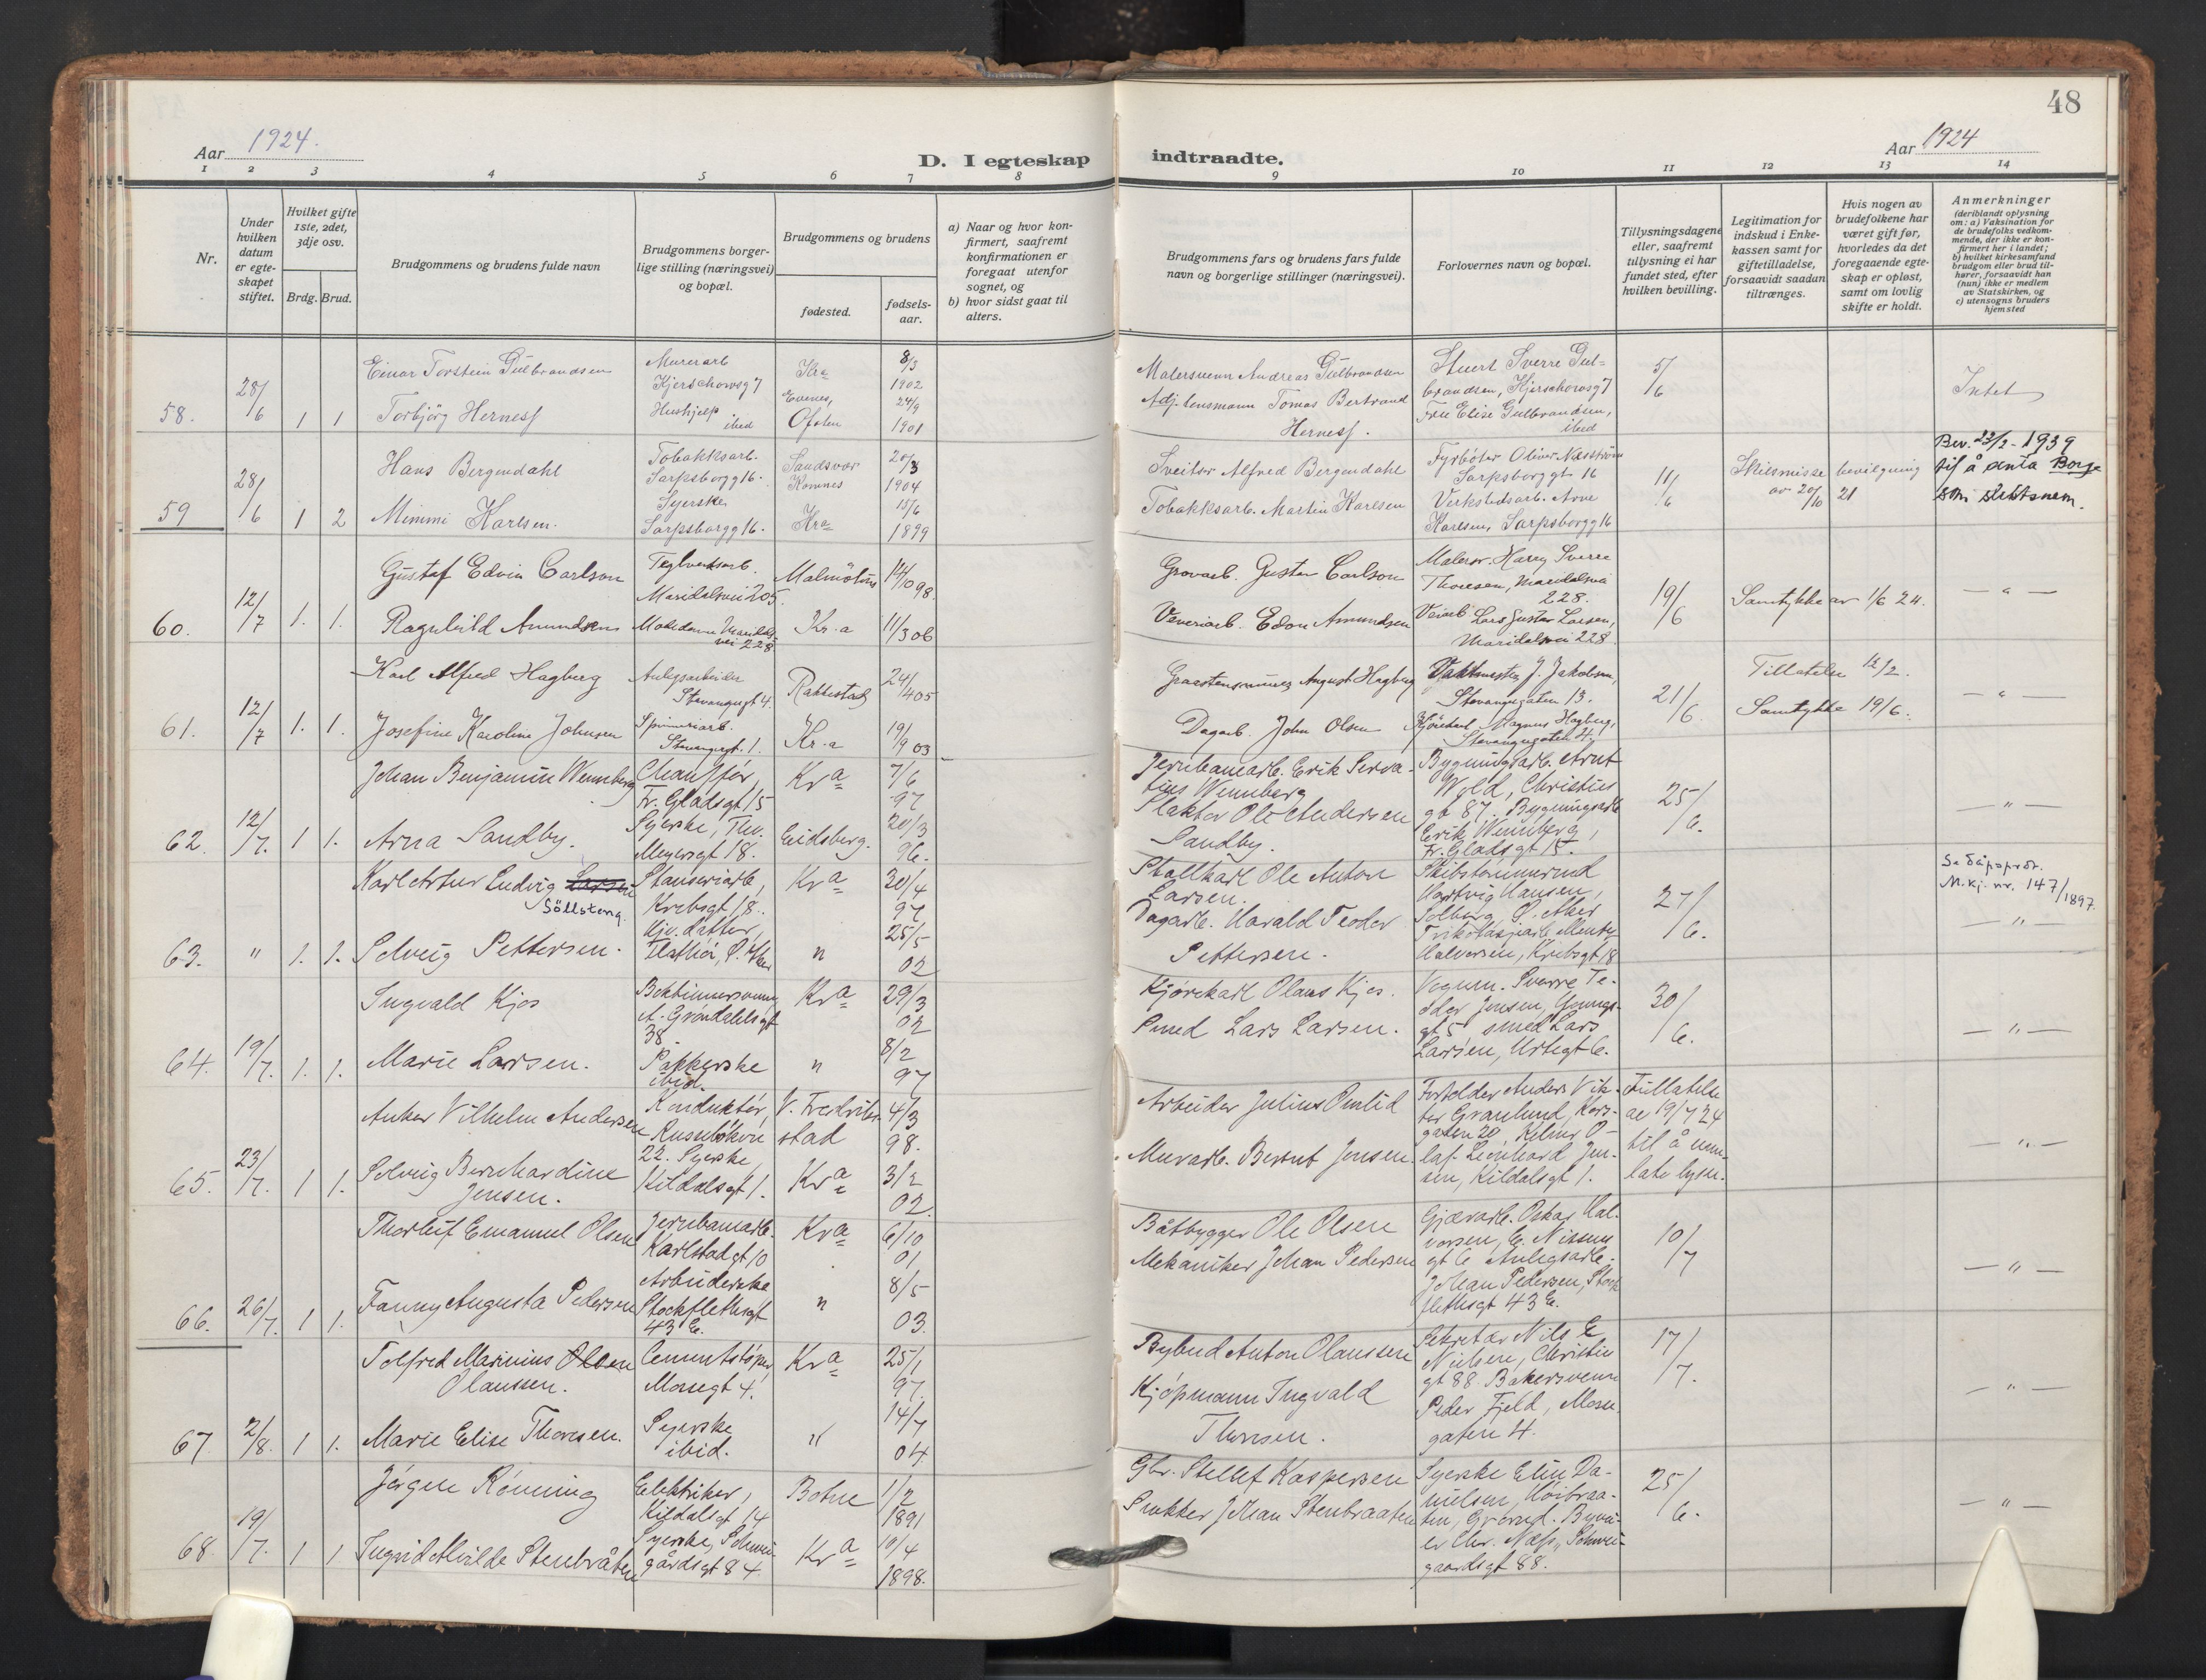 48
Aar 1924.
D. I egteskap
indtraadte.
Aar 1924
1 2 3 4 5 6 7 8
9 10 11 12 13 14
Nr.
Under hvilken datum er egte-skapet stiftet.
Hvilket gifte 1ste, 2det, 3dje osv.
Brdg. Brud.
Brudgommens og brudens fulde navn
Brudgommens borger-lige stilling (næringsvei) og bopæl.
Brudgommens og brudens
fødested.
fødsels-aar.
a) Naar og hvor kon-firmert, saafremt konfirmationen er foregaat utenfor sognet, og
b) hvor sidst gaat til alters.
Brudgommens fars og brudens fars fulde navn og borgerlige stillinger (næringsvei).
Forlovernes navn og bopæl.
Tillysningsdagene eller, saafremt tillysning ei har fundet sted, efter hvilken bevilling.
Legitimation for indskud i Enke-kassen samt for giftetilladelse, forsaavidt saadan tiltrænges.
Hvis nogen av brudefolkene har været gift før, hvorledes da det foregaaende egte-skap er opløst, samt om lovlig skifte er holdt.
Anmerkninger
(deriblandt oplysning om: a) Vaksination for de brudefolks vedkom-mende, der ikke er kon-firmert her i landet; b) hvilket kirkesamfund brudgom eller brud til-hører, forsaavidt han (hun) ikke er medlem av Statskirken, og c) utensogns bruders hjemsted
58. 28/6 1 1
Einar Torstein Gulbrandsen
Murerarb Kjerschowsg 7
Kra 8/3 1902
Torbjörg Herness
Hushjelp ibid
Evenes, Ofoten 24/9 1901
Malersvenn Andreas Gulbrandsen
Adj. Lensmann Tomas Bertrand Herness.
Stuert Sverre Gul-
brandsen, Kjerschowsg 7
Fru Elise Gulbrandsen,
ibid
5/6
Intet
59 28/6 1 2
Hans Bergendahl
Tobakksarb. Sarpsborgg 16.
Sandsvær Komnes 20/3 1904
Mimmi Karlsen.
Syerske Sarpsborgg 16.
Kra 15/6 1899
Sveitser Alfred Bergendahl
Tobakksarb. Martin Karlsen
Fyrböter Oliver Næsström
Sarpsborggt 16
Verkstedsarb. Arne
Karlsen, Sarpsborgg 16
11/6
Skilsmisse bevilgning
av 20/10 21
Bev. 22/2 - 1939
til å anta Borge
som slektsnavn.
60. 12/7 1. 1.
Gustaf Edvin Carlson
Teglverksarb. Maridalsvei 205.
Malmöhus 14/10 98.
Ragnhild Amundsen
Maridalsvei 228
Kr.a 11/3 06
Grovarb. Gustav Carlson
Veveriarb. Edon Amundsen
Malersv. Harry Sverre
Thoresen, Maridalsvei
228.
Veiarb Lars Gustav Larsen,
Maridalsvei 228
19/6
Samtykke av 1/6 24.
— " —
61. 12/7 1. 1.
Karl Alfred Hagberg
Anlegsarbeider Stavangergt 4.
Rakkestad 24/4 05
Josefine Karoline Johnsen
Spinneriarb. Stavangergt. 1.
Kr.a 19/9 03
August Hagberg
Dagarb. John Olsen
Vaktmester J. Jakobsen,
Stavangergaten 13.
Magnus Hagberg,
Stavangergaten 4.
21/6
Tillatelse 12/2.
Samtykke 19/6.
— " —
62. 12/7. 1 1.
Johan Benjamin Wennberg
Chauffør, Fr. Gladsgt 15
Kra 7/6 97
Arna Sandby.
Syerske, Thv. Meyersgt 18.
Eidsberg. 20/3 96.
Jernbanearb. Erik Serva-
tius Wennberg
Slakter Ole Andersen
Sandby.
Bygningsarb. Arnt
Wold, Christies
gt 87. Bygningsarb
Erik Wennberg,
Fr. Gladsgt 15.
25/6.
— " —
63. " 1. 1.
Karl Artur Ludvig Larsen
Söllsteng.
Stanseriarb, Krebsgt 18.
Kra 20/4 97
Solveig Pettersen.
Gjv. datter,
" 25/5 02
Stallkarl Ole Anton
Larsen.
Dagarb. Harald Teodor
Pettersen.
Skibstømmermand
Hartvig Hansen,
Solberg, Ø. Aker
Halvorsen, Krebsgt 18
27/6.
Se dåpsprot.
M.kj. nr. 147/1897.
— " —
64. 19/7. 1. 1.
Ingvald Kjos
A. Grøndahlsgt 38.
Kra 29/3 02
Marie Larsen.
Pakkerske ibid.
" 8/2 97
Kjørekarl Olaus Kjos.
Smed Lars Larsen.
Vognm. Sverre Te-
odor Jensen, Youngs-
gt 5 smed Lars
Larsen, Urtegt 6.
30/6.
— " —
65. 23/7. 1 1.
Anker Vilhelm Andersen
Konduktør, Ruseløkvn 22.
V. Fredrikstad 4/3 98.
Solveig Bernhardine
Jensen.
Syerske Kildalsgt 1.
Kra 3/2 02.
Arbeider Julius Omlid
Murarb. Bernt Jensen.
Forgolder Anders Vik-
tor Granlund, Kors-
gaten 20, Kelner O-
laf Leonhard Jen-
sen, Kildalsgt 1.
Tillatelse
av 19/7 24
til å unn-
late lysn.
— " —
66. 26/7. 1 1.
Thorleif Emanuel Olsen
Jernbanearb. Karlstadgt 10
Kra 6/10 01
Fanny Augusta Pedersen
Arbeiderske Stockflethsgt 43 E.
" 8/5 03.
Båtbygger Ole Olsen
Mekaniker Johan Pedersen
Gjærarb. Oskar Hal-
vorsen, E. Nissens
gt 6 Anlegsarb.
Johan Pedersen, Stock
flethsgt 43 E.
10/7
— " —
67. 2/8. 1 1.
Tolfred Marinius Olsen
Olaussen.
Cementstøper, Mossegt 4.
Kra 25/1 97.
Marie Elise Thoresen.
Syerske ibid.
" 14/7 04
Bybud Anton Olaussen
Kjøpmann Ingvald
Thoresen.
Sekretær Nils E
Nielsen, Christie
gt 88 Bakersvenn
Peder Fjeld, Mosse
gaten 4.
17/7.
— " —
68. 19/7. 1 1
Jørgen Rønning
Elektriker, Kildalsgt 14
Botne 1/7 1891
Ingrid Alvilde Stenbråten
Syerske, Schwei-
gårdsgt 84.
Kra 10/4 1898.
Gbr. Stellef Kaspersen
Snekker Johan Stenbraaten
Syerske Elin Da-
nielsen, Høibraa-
ten, Grorud.
er Chr. Næss, Schwei-
gaardsgt 88.
25/6.
— " —